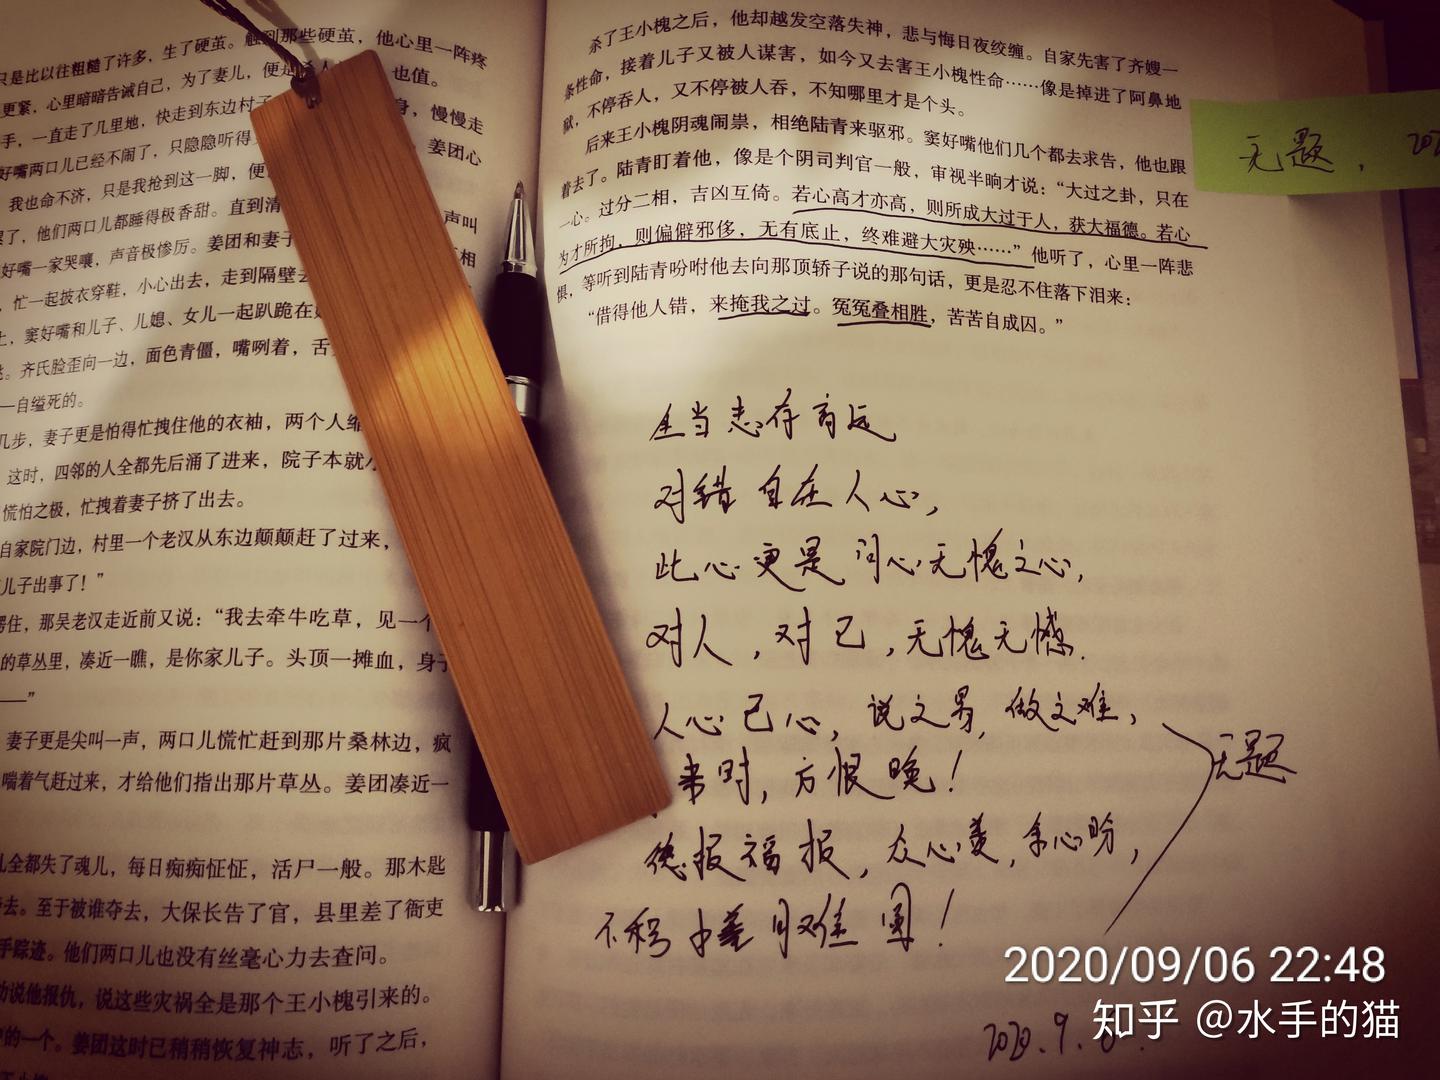 只是比以往粗糙了许多，生了硬茧。触到那些硬茧，他心里一阵疼
更紧，心里暗暗告诫自己，为了妻儿，便是杀人
也值。
手，一直走了几里地，快走到东边村子
身，慢慢走
好嘴两口儿已经不闹了，只隐隐听得
姜团心
我也命不济，只是我抢到这一脚，便
了，他们两口儿都睡得极香甜。直到清
声叫
好嘴一家哭嚷，声音极惨厉。姜团和妻子
相
忙一起披衣穿鞋，小心出去，走到隔壁去
上，窦好嘴和儿子、儿媳、女儿一起趴跪在
。齐氏脸歪向一边，面色青僵，嘴咧着，舌
——自缢死的。
几步，妻子更是怕得忙拽住他的衣袖，两个人
这时，四邻的人全都先后涌了进来，院子本就小
慌怕之极，忙拽着妻子挤了出去。
自家院门边，村里一个老汉从东边颠颠赶了过来，
儿子出事了！”
愣住，那吴老汉走近前又说：“我去牵牛吃草，见一个
的草丛里，凑近一瞧，是你家儿子。头顶一摊血，身子
——”
妻子更是尖叫一声，两口儿慌忙赶到那片桑林边，疯
喘着气赶过来，才给他们指出那片草丛。姜团凑近一
儿全都失了魂儿，每日痴痴怔怔，活尸一般。那木匙
去。至于被谁夺去，大保长告了官，县里差了衙吏
手踪迹。他们两口儿也没有丝毫心力去查问。
劝说他报仇，说这些灾祸全是那个王小槐引来的。
中的一个。姜团这时已稍稍恢复神志，听了之后，
杀了王小槐之后，他却越发空落失神，悲与悔日夜绞缠。自家先害了齐嫂一
条性命，接着儿子又被人谋害，如今又去害王小槐性命……像是掉进了阿鼻地
狱，不停吞人，又不停被人吞，不知哪里才是个头。
后来王小槐阴魂闹祟，相绝陆青来驱邪。窦好嘴他们几个都去求告，他也跟
着去了。陆青盯着他，像是个阴司判官一般，审视半晌才说：“大过之卦，只在
一心。过分二相，吉凶互倚。若心高才亦高，则所成大过于人，获大福德。若心
为才所拘，则偏僻邪侈，无有底止，终难避大灾殃……”他听了，心里一阵悲
惧，等听到陆青吩咐他去向那顶轿子说的那句话，更是忍不住落下泪来：
“借得他人错，来掩我之过。冤冤叠相胜，苦苦自成囚。”
当志存高远
对错自在人心，
此心更是问心无愧之心，
对人，对己，无愧无憾.
人心己心，说之易，做之难，
来时，方恨晚！
德报福报，众心美，余心盼，
难圆！
无题
2020.9.6.
无题，202
2020/09/06 22:48
知乎 @水手的猫